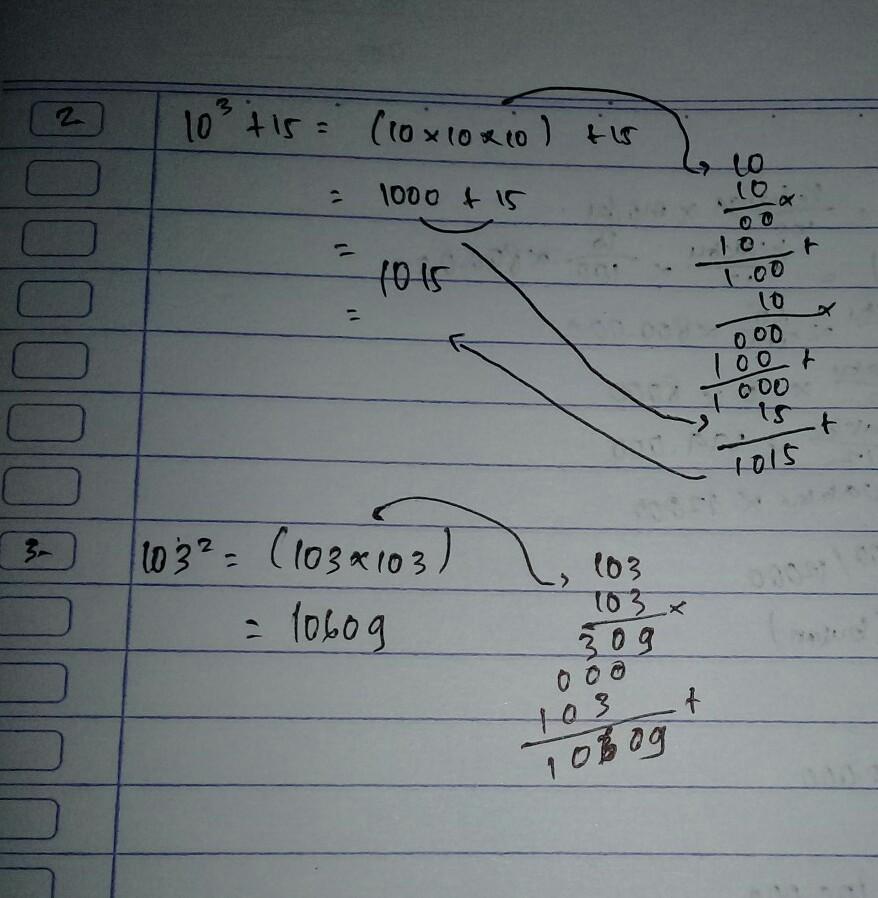 2 10³ + 15 = (10 × 10 × 10) + 15
= 1000 + 15
= 1015
=
10
10 ×
00
10 +
1.00
10 ×
000
100 +
1000
15 +
1015
3- 103² = (103 × 103)
= 10609
103
103 ×
309
000
103 +
10609